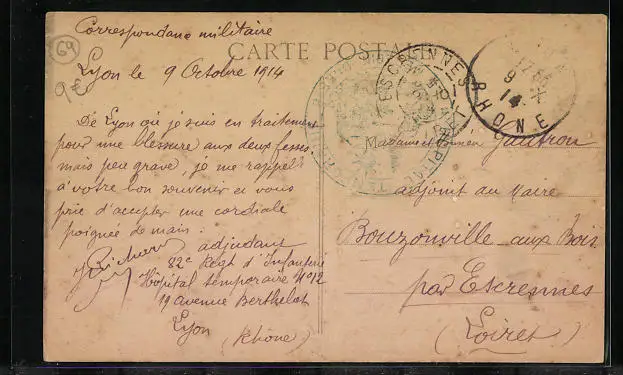 Correspondance militaire
CARTE POSTALE
69
Lyon le 9 Octobre 1914
9€
De Lyon où je suis en traitement
pour une blessure aux deux fesses
mais peu grave, je me rappelle
à votre bon souvenir et vous
prie d'accepter une cordiale
poignée de main.
adjudant
82e Regt d'Infanterie
Hôpital temporaire N°12
19 avenue Berthelot
Lyon (Rhône)
ESCRENNES
RHONE
9
14
Madame et Gautron
adjoint au Maire
Bouzonville aux Bois
par Escrennes
(Loiret)